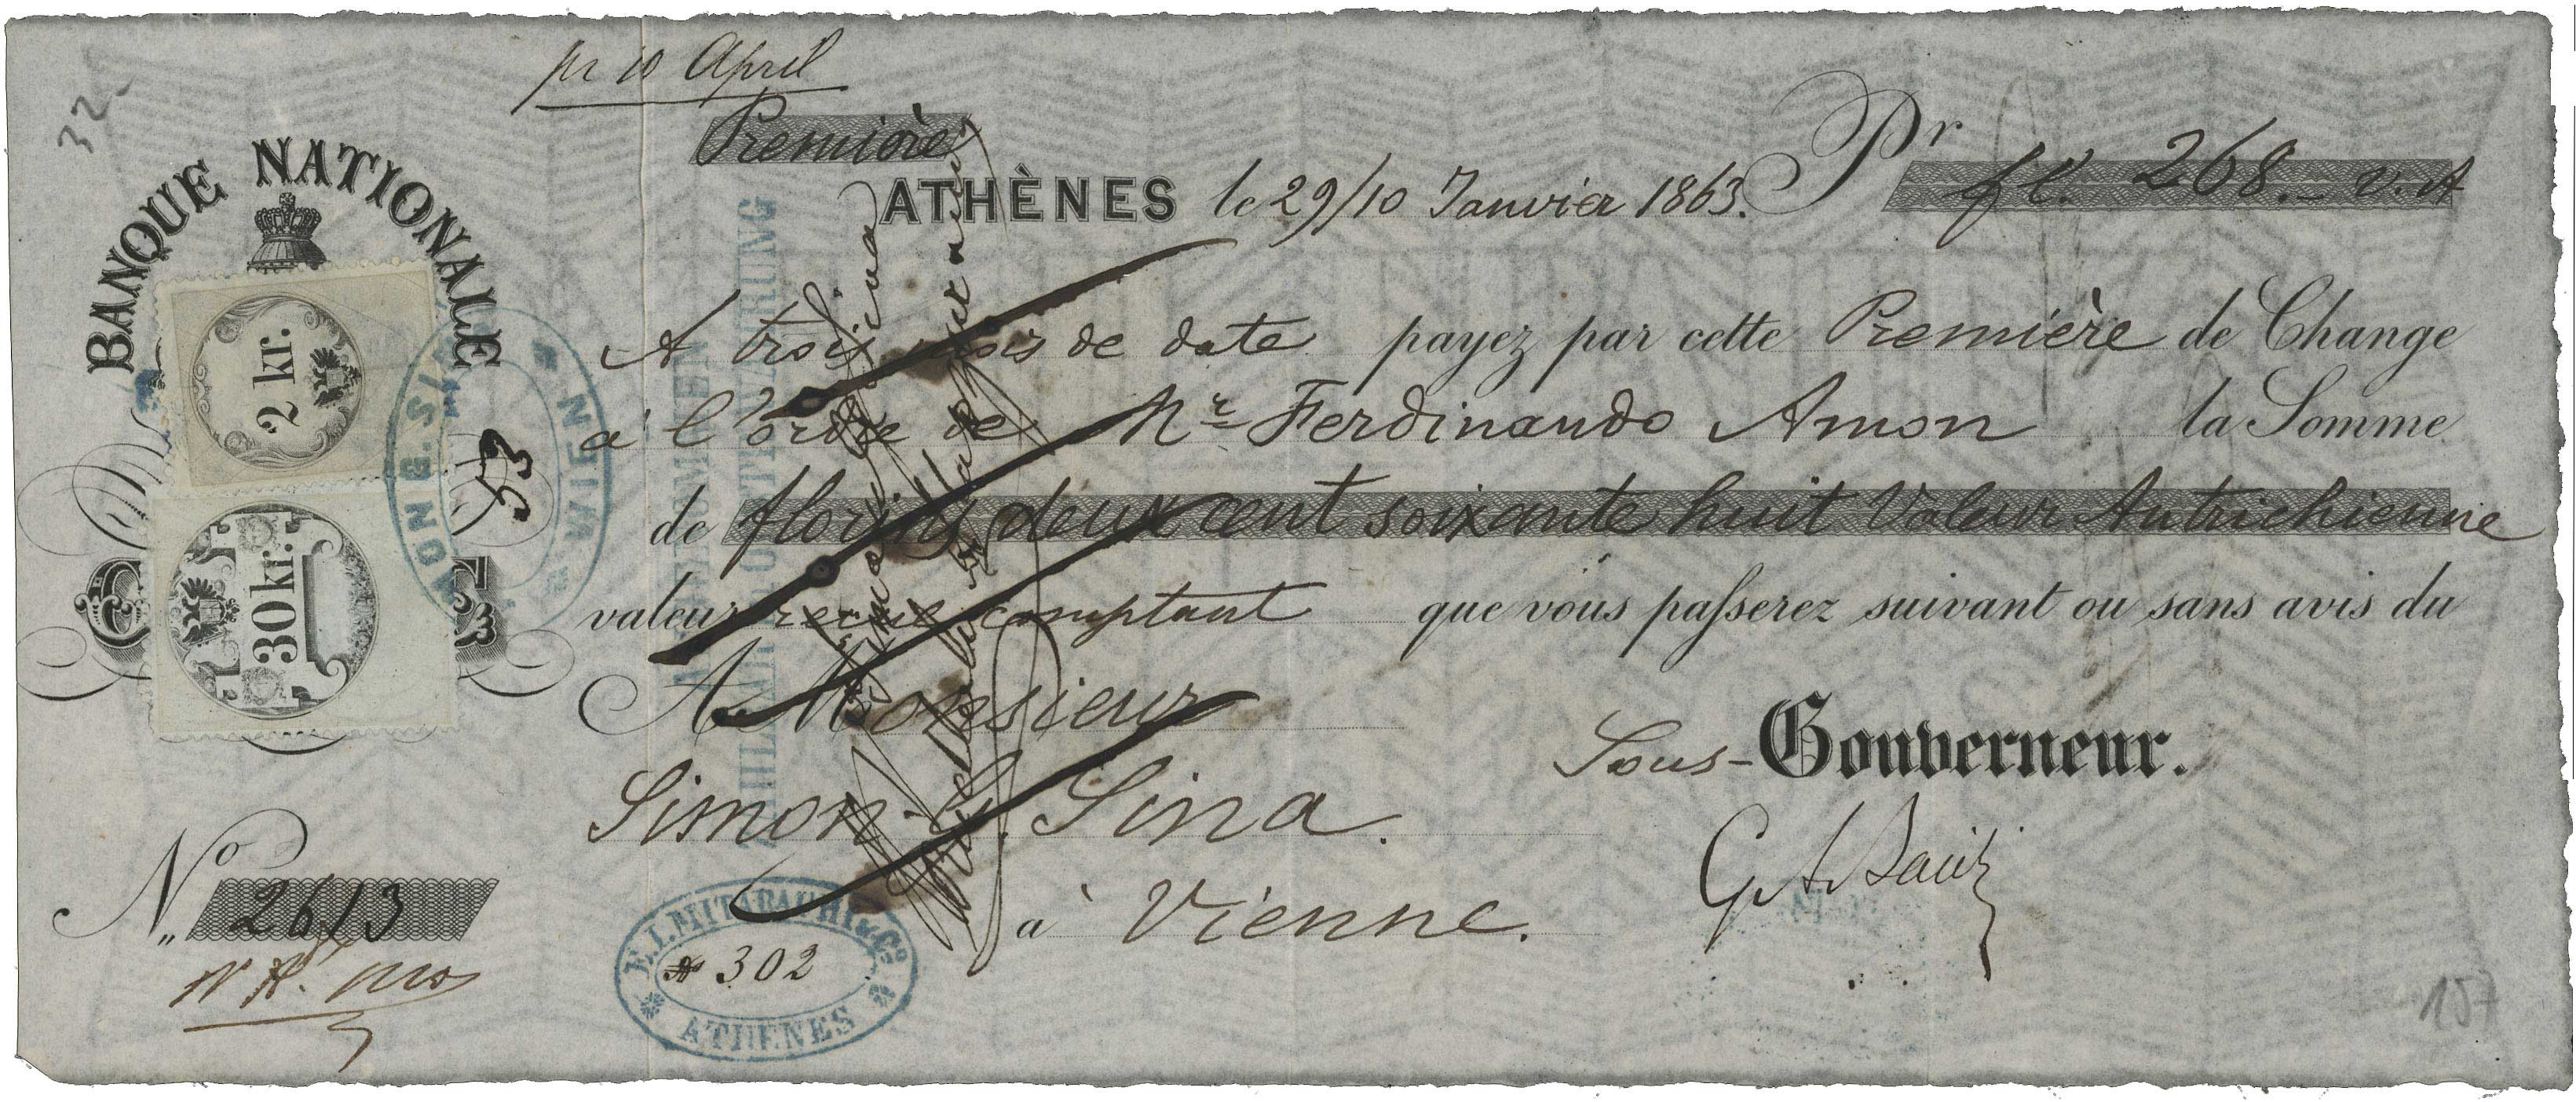 pr 10 April
32.
Première
BANQUE NATIONALE
ATHÈNES le 29/10 Janvier 1863. Pr fl. 268.- v. A
A trois mois de date payez par cette Première de Change
à l'ordre de Mr Ferdinando Amon la Somme
de florins deux cent soixante huit Valeur Autrichienne
valeur reçue comptant que vous passerez suivant ou sans avis du
A Monsieur
Simon G. Sina.
à Vienne.
Sous-Gouverneur.
2 kr.
30 kr.
53
WIEN
ÖSTR. WÄHRUNG
No 2613
E. I. MITARACHI & Co
302
ATHENES
157